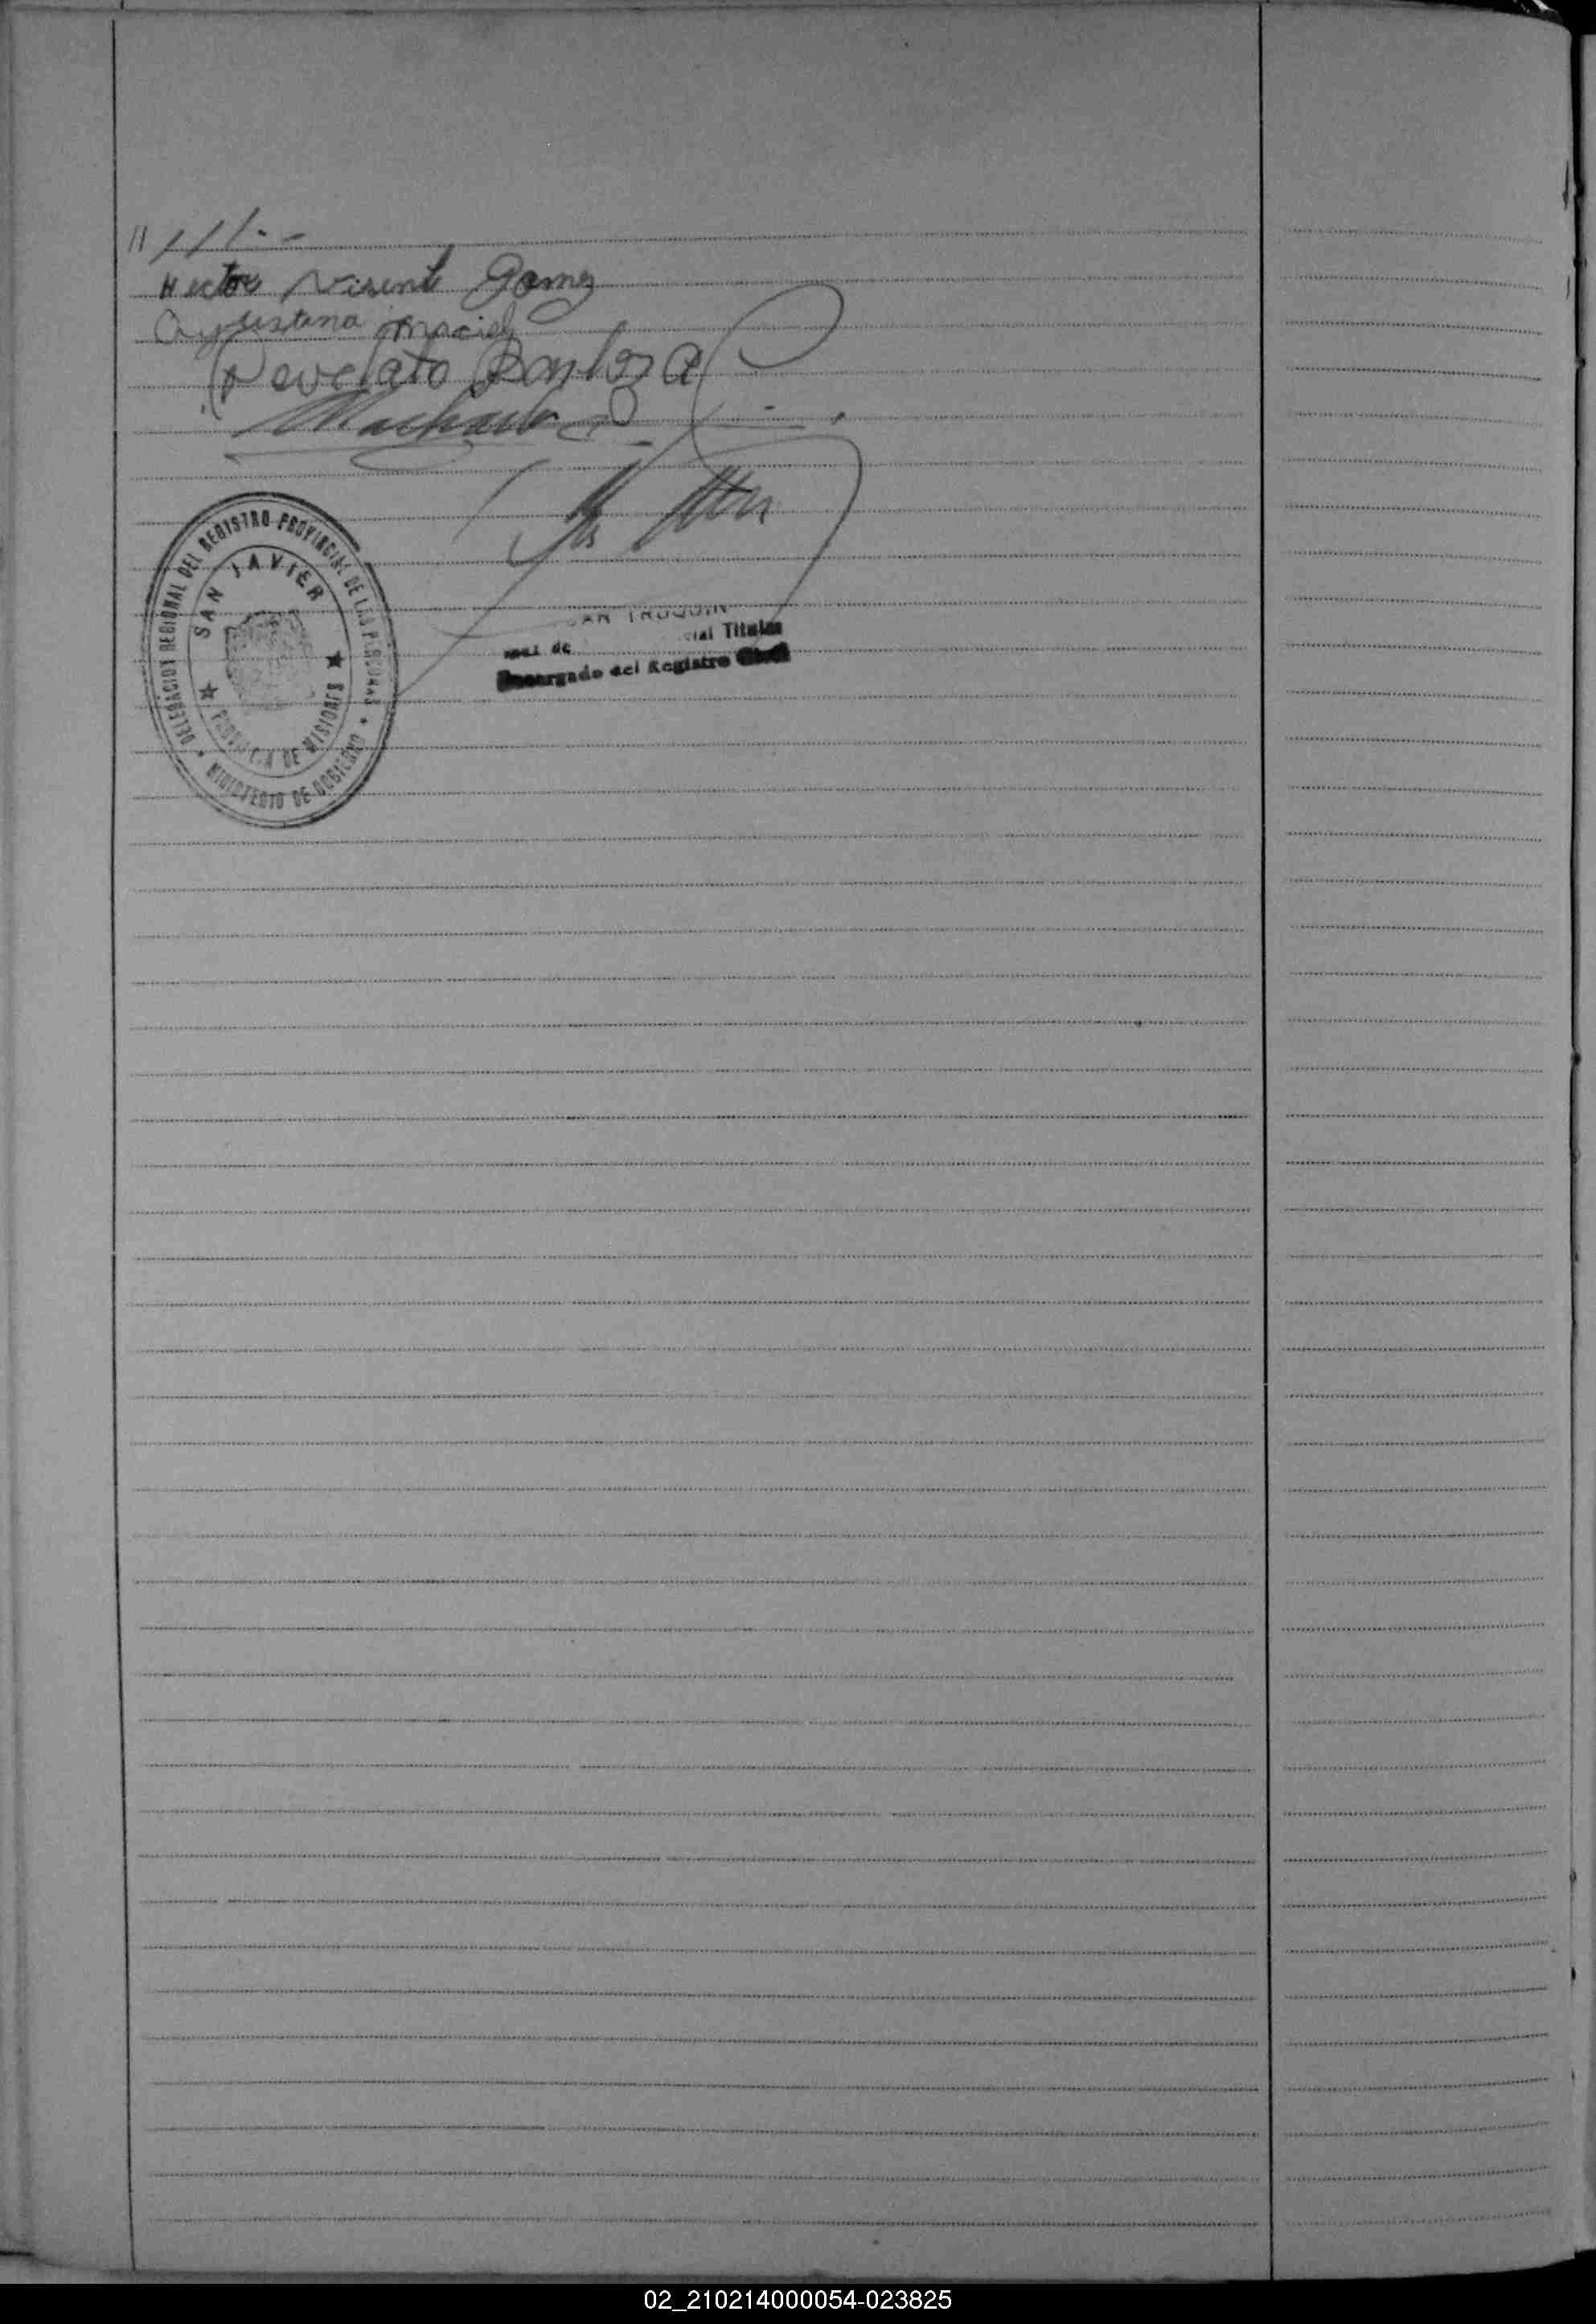 //
///.-
Hector Visente Gomez
Agustina Maciel
Barboza
Machado
DELEGACION REGIONAL DEL REGISTRO PROVINCIAL DE LAS PERSONAS
SAN JAVIER
PROVINCIA DE MISIONES
MINISTERIO DE GOBIERNO
de Titular
Encargado del Registro Civil
02_210214000054-023825